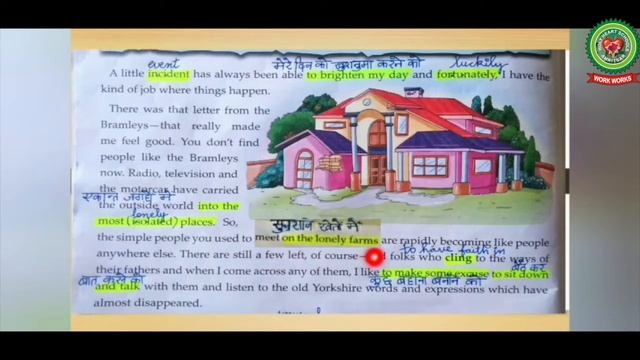 event मेरे दिन को खुशनुमा करने को luckily
A little incident has always been able to brighten my day and fortunately, I have the
kind of job where things happen.
There was that letter from the
Bramleys—that really made
me feel good. You don't find
people like the Bramleys
now. Radio, television and
the motorcar have carried
एकान्त जगहों में
the outside world into the
lonely
most (isolated) places. So,
सुनसान खेतों में
the simple people you used to meet on the lonely farms are rapidly becoming like people
to have faith in
anywhere else. There are still a few left, of course— folks who cling to the ways of
बैठ कर
their fathers and when I come across any of them, I like to make some excuse to sit down
बात करने को कुछ बहाना बनाने को
and talk with them and listen to the old Yorkshire words and expressions which have
almost disappeared.
WORK WORKS